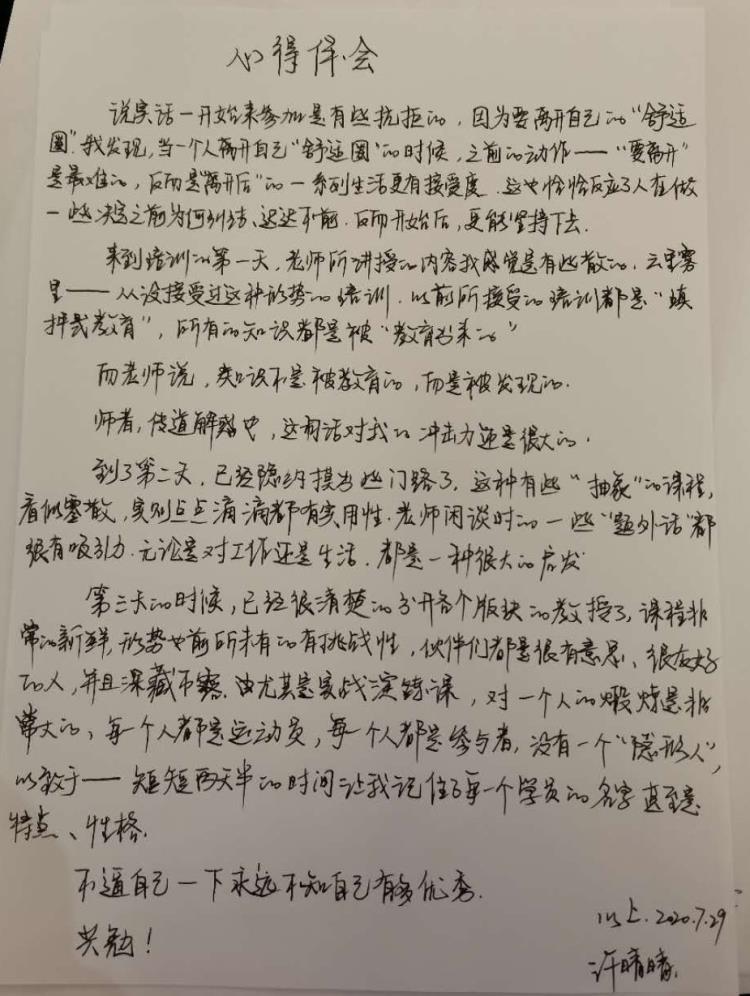 心得体会
说实话一开始来参加是有些抗拒的，因为要离开自己的“舒适
圈”.我发现，当一个人离开自己“舒适圈”的时候，之前的动作——“要离开”
是最难的，反而是“离开后”的一系列生活更有接受度.这也恰恰反应了人在做
一些决定之前为何纠结、迟迟不前.反而开始后，更能坚持下去.
来到培训的第一天，老师所讲授的内容我感觉是有些散的，云里雾
里——从没接受过这种形势的培训.以前所接受的培训都是“填
押式教育”，所有的知识都是被“教育出来的”
而老师说，知识不是被教育的，而是被发现的.
师者，传道解惑也，这句话对我的冲击力还是很大的.
到了第二天，已经隐约摸为些门路了.这种有些“抽象”的课程，
看似零散，实则点点滴滴都有实用性.老师闲谈时的一些“题外话”都
很有吸引力.无论是对工作还是生活.都是一种很大的启发
第三天的时候，已经很清楚的分开各个版块的教授了，课程非
常的新鲜，形势也前所未有的有挑战性，伙伴们都是很有意思、很友好
的人，并且深藏不露.尤其是实战演练课，对一个人的煅炼是非
常大的、每个人都是运动员，每个人都是参与者，没有一个“隐形人”，
以致于——短短两天半的时间让我记住了每一个学员的名字甚至是
特点、性格.
不逼自己一下永远不知自己有多优秀.
共勉！
以上.2020.7.29
许晴晴.